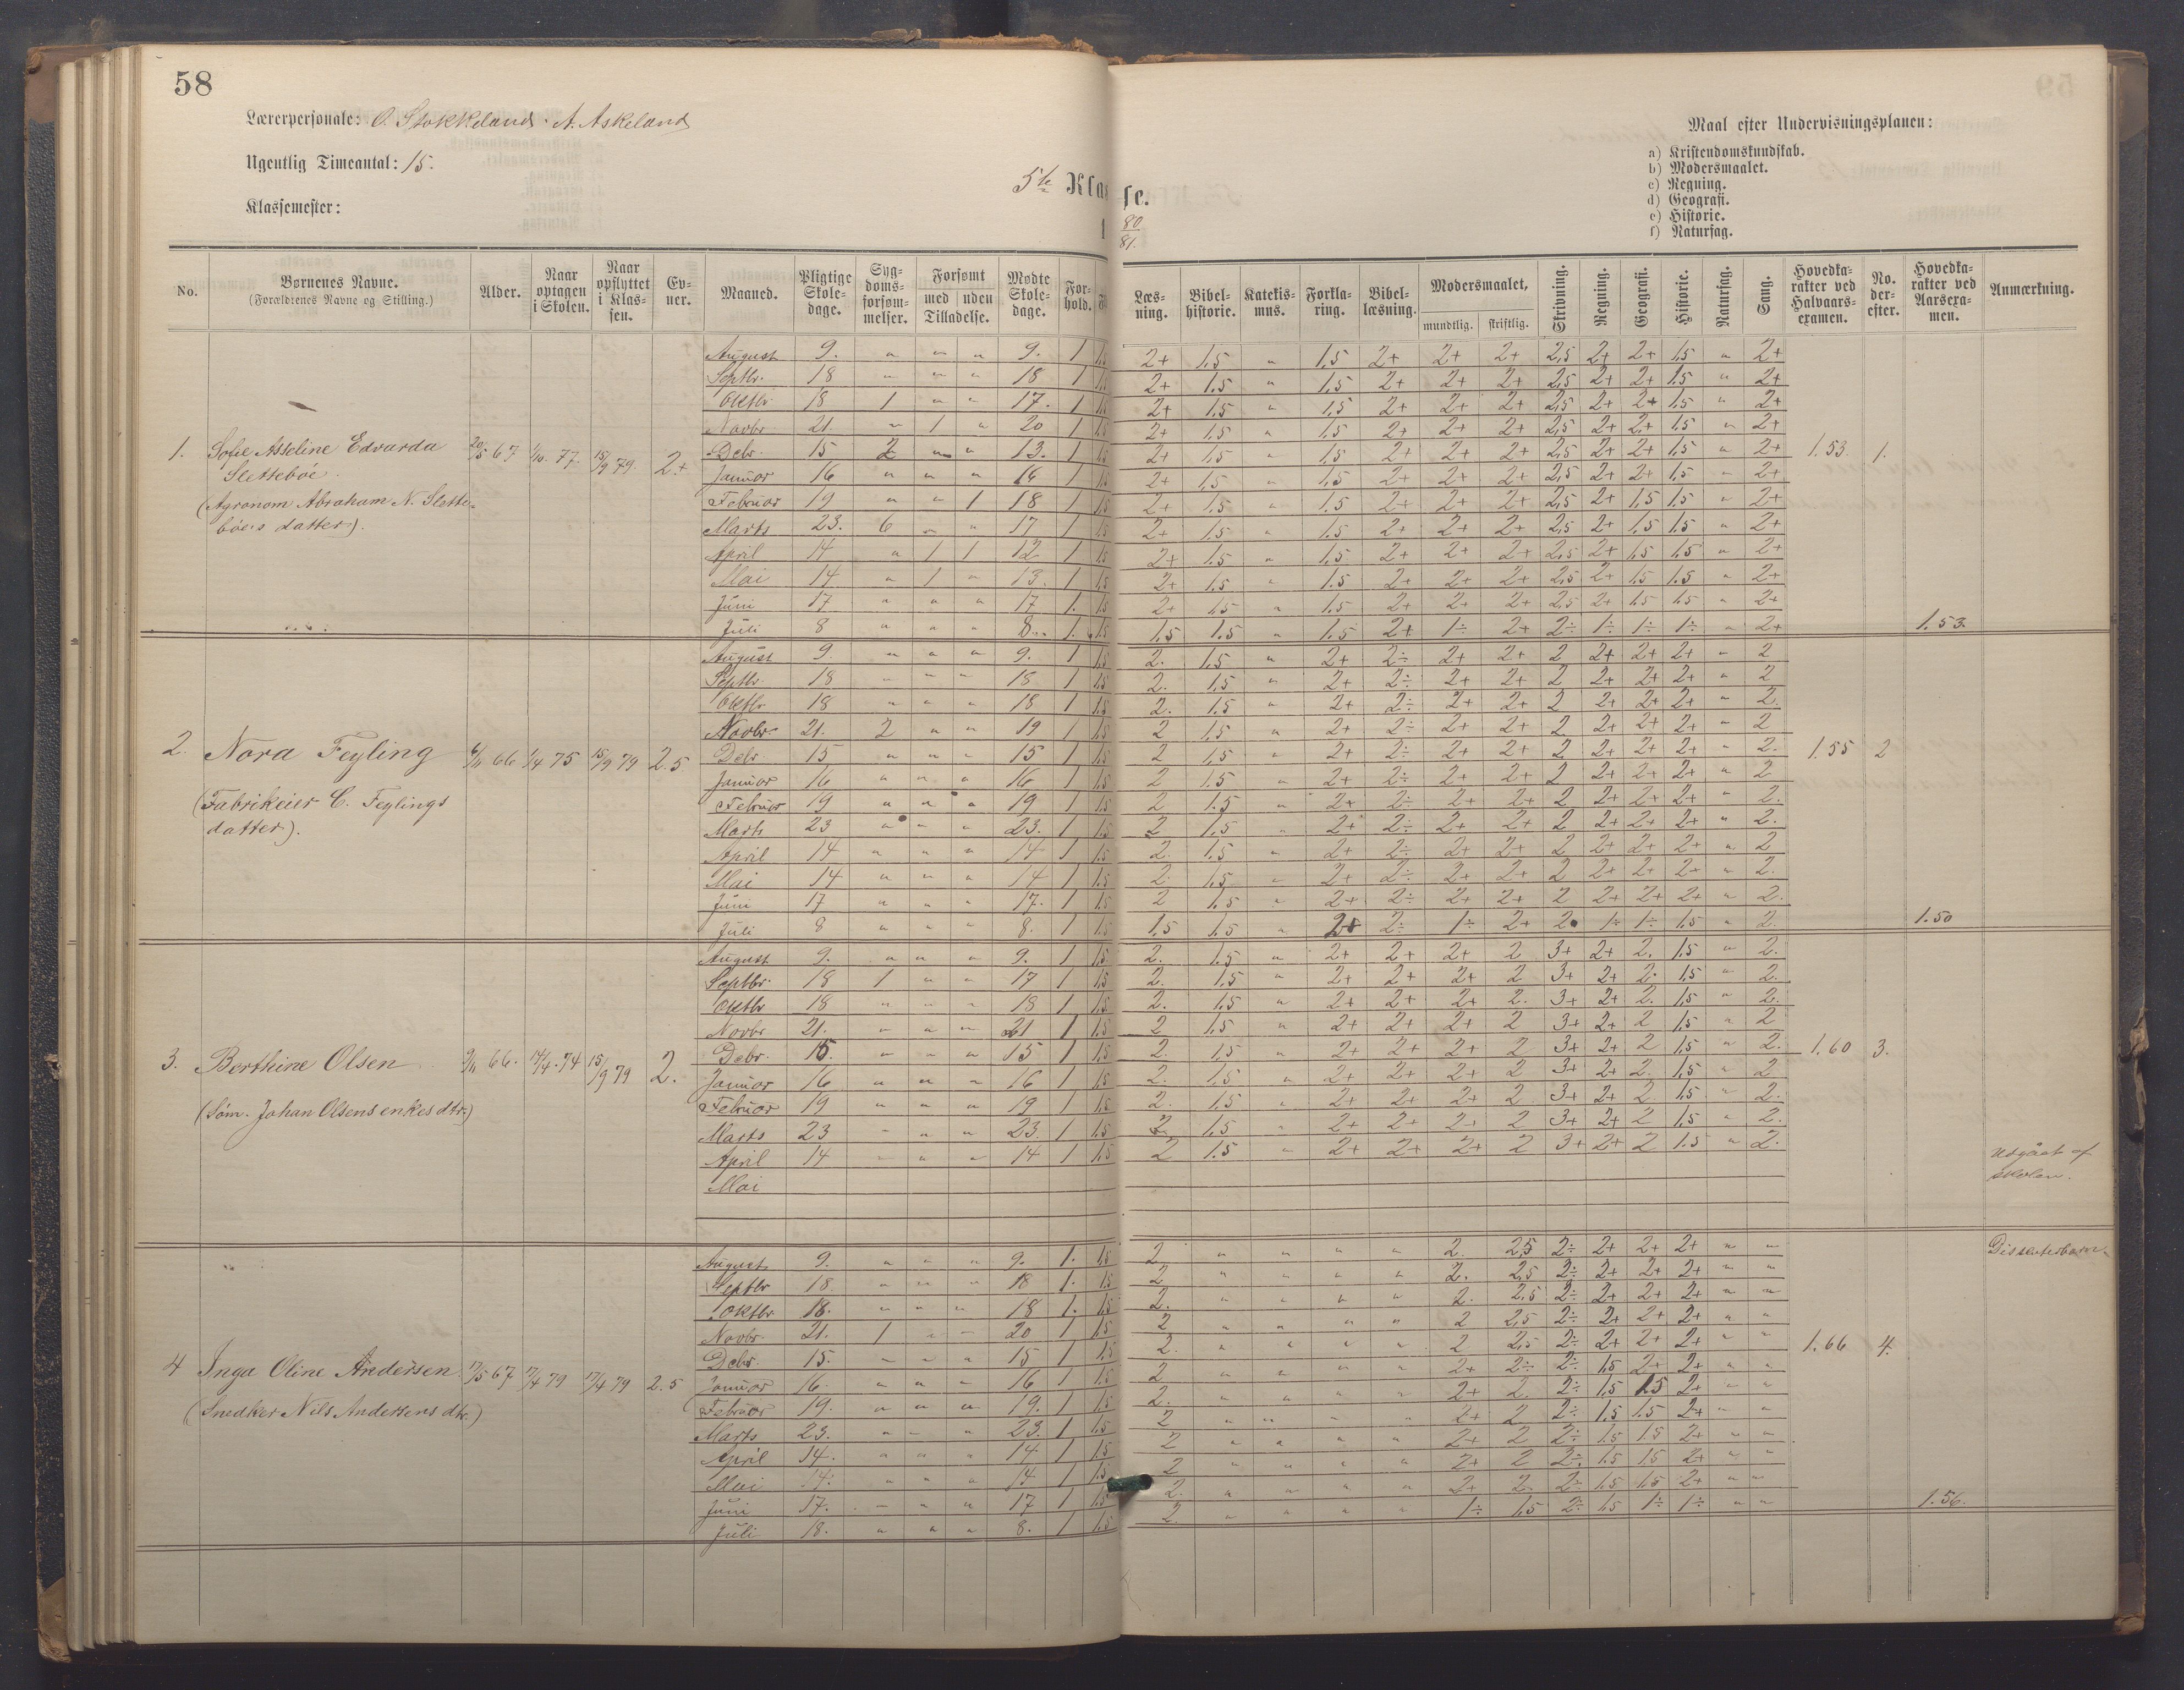 58
Lærerpersonale: O. Stokkeland. A. Askeland
Ugentlig Timeantal: 15.
Klassemester:
5te Klasse.
80
81.
Maal efter Undervisningsplanen:
a) Kristendomskundskab.
b) Modersmaalet.
c) Regning.
d) Geografi.
e) Historie.
f) Naturfag.
No. Børnenes Navne. (Forældrenes Navne og Stilling.) Alder. Naar optagen i Skolen. Naar opflyttet i Klassen. Evner. Maaned. Pligtige Skoledage. Sygdomsforsømmelser. Forsømt med uden Tilladelse. Mødte Skoledage. Forhold. Læsning. Bibelhistorie. Katekismus. Forklaring. Bibellæsning. Modersmaalet, mundtlig. skriftlig. Skrivning. Regning. Geografi. Historie. Naturfag. Sang. Hovedkarakter ved Halvaarsexamen. No. derefter. Hovedkarakter ved Aarsexamen. Anmærkning.
August 9. " " " 9. 1 1,5 2+ 1,5 " 1,5 2+ 2+ 2+ 2,5 2+ 2+ 1,5 " 2+
Septbr. 18 " " " 18 1 1,5 2+ 1,5 " 1,5 2+ 2+ 2+ 2,5 2+ 2+ 1,5 " 2+
Oktbr 18 1 " " 17. 1 1,5 2+ 1,5 " 1,5 2+ 2+ 2+ 2,5 2+ 2+ 1,5 " 2+
Novbr 21. " 1 " 20 1 1,5 2+ 1,5 " 1,5 2+ 2+ 2+ 2,5 2+ 2+ 1,5 " 2+
1. Sofie Asseline Edvarda 20/5 67 1/10. 77. 15/9 79. 2+ Debr. 15 2 " " 13. 1 1,5 2+ 1,5 " 1,5 2+ 2+ 2+ 2,5 2+ 2+ 1,5 " 2+ 1.53. 1.
Sletteböe. Januar 16 " " " 16 1 1,5 2+ 1,5 " 1,5 2+ 2+ 2+ 2,5 2+ 2+ 1,5 " 2+
(Agronom Abraham N. Slette- Februar 19 " " 1 18 1 1,5 2+ 1,5 " 1.5 2+ 2+ 2+ 2,5 2+ 1,5 1,5 " 2+
böe's datter). Marts 23. 6 " " 17 1 1,5 2+ 1,5 " 1,5 2+ 2+ 2+ 2,5 2+ 1,5 1,5 " 2+
April 14 " 1 1 12 1 1,5 2+ 1,5 " 1,5 2+ 2+ 2+ 2,5 2+ 1,5 1,5 " 2+
Mai 14 " 1 " 13. 1 1,5 2+ 1,5 " 1.5 2+ 2+ 2+ 2,5 2+ 1,5 1.5 " 2+
Juni 17 " " " 17 1. 1,5 2+ 1,5 " 1.5 2+ 2+ 2+ 2,5 2+ 1,5 1,5 " 2+
Juli 8 " " " 8. 1. 1,5 1,5 1,5 " 1,5 2+ 1÷ 2+ 2÷ 1÷ 1÷ 1÷ " 2+ 1.53.
August 9. " " " 9. 1 1,5 2. 1,5 " 2+ 2÷ 2+ 2+ 2 2+ 2+ 2+ " 2
Septbr. 18 " " " 18 1 1,5 2. 1,5 " 2+ 2÷ 2+ 2+ 2 2+ 2+ 2+ " 2
Oktbr 18 " " " 18 1 1,5 2. 1.5 " 2+ 2÷ 2+ 2+ 2 2+ 2+ 2+ " 2.
Novbr. 21. 2 " " 19 1 1,5 2 1,5 " 2+ 2÷ 2+ 2+ 2 2+ 2+ 2+ " 2
2. Nora Feyling 6/11 66 1/4 75 15/9 79 2.5 Debr 15 " " " 15 1 1,5 2 1,5 " 2+ 2÷ 2+ 2+ 2 2+ 2+ 2+ " 2. 1.55 2
Januar 16 " " " 16 1 1,5 2 1.5 " 2+ 2÷ 2+ 2+ 2 2+ 2+ 2+ " 2
(Fabrikeier C. Feylings Februar 19 " " " 19 1 1,5 2 1.5 " 2+ 2÷ 2+ 2+ 2 2+ 2+ 2+ " 2.
datter). Marts 23 " " " 23. 1 1,5 2 1,5 " 2+ 2÷ 2+ 2+ 2 2+ 2+ 2+ " 2.
April 14 " " " 14 1 1,5 2. 1.5 " 2+ 2÷ 2+ 2+ 2 2+ 2+ 2+ " 2
Mai 14 " " " 14 1 1,5 2. 1,5 " 2+ 2÷ 2+ 2+ 2 2+ 2+ 2+ " 2.
Juni 17 " " " 17. 1 1,5 2 1,5 " 2+ 2÷ 2+ 2+ 2 2+ 2+ 2+ " 2.
Juli 8 " " " 8. 1 1,5 1,5 1,5 " 2+ 2÷ 1÷ 2+ 2 1÷ 1÷ 1,5 " 2. 1.50
August 9. " " " 9. 1 1,5 2. 1.5 " 2+ 2+ 2+ 2 3+ 2+ 2. 1,5 " 2.
Septbr. 18 1 " " 17 1 1,5 2. 1,5 " 2+ 2+ 2+ 2 3+ 2+ 2. 1,5 " 2.
Oktbr 18 " " " 18 1 1,5 2. 1,5 " 2+ 2+ 2+ 2. 3+ 2+ 2. 1,5 " 2.
Novbr 21. " " " 21 1 1,5 2 1,5 " 2+ 2+ 2+ 2 3+ 2+ 2 1,5 " 2
3. Berthine Olsen 9/11 66. 17/4. 74 15/9 79 2. Debr. 15. " " " 15 1 1,5 2. 1,5 " 2+ 2+ 2+ 2 3+ 2+ 2 1,5 " 2. 1.60 3.
Januar 16 " " " 16 1 1,5 2. 1,5 " 2+ 2+ 2+ 2 3+ 2+ 2. 1,5 " 2
(Söm. Johan Olsens enkes dtr.) Februar 19 " " " 19 1 1,5 2. 1,5 " 2+ 2+ 2+ 2 3+ 2+ 2 1,5 " 2.
Marts 23 " " " 23. 1 1,5 2. 1,5 " 2+ 2+ 2+ 2 3+ 2+ 2 1,5 " 2.
April 14 " " " 14 1 1,5 2 1.5 " 2+ 2+ 2+ 2 3+ 2+ 2 1.5 " 2. Udgået af
Mai skolen.
August 9. " " " 9. 1. 1,5 2 " " " " 2. 2,5 2÷ 2+ 2+ 2+ " " Dissenterbarn.
Septbr 18. " " " 18 1. 1,5 2 " " " " 2. 2,5 2÷ 2+ 2+ 2+ " "
Oktbr. 18. " " " 18 1. 1,5 2. " " " " 2. 2,5 2÷ 2+ 2+ 2+ " "
Novbr. 21. 1 " " 20 1 1,5 2 " " " " 2 2,5 2÷ 2+ 2+ 2+ " "
4 Inga Oline Andersen 17/5 67 17/4 79 17/4 79 2.5 Debr. 15. " " " 15 1 1,5 2. " " " " 2 2,5 2÷ 2+ 2+ 2+ " " 1.66 4.
Januar 16. " " " 16 1 1,5 2 " " " " 2+ 2÷ 2÷ 1,5 2+ 2+ " "
(Snedker Nils Andersens dtr.) Februar 19. " " " 19. 1 1,5 2. " " " " 2+ 2. 2÷ 1,5 1,5 2+ " "
Marts 23. " " " 23. 1 1,5 2 " " " " 2+ 2 2÷ 1,5 1,5 2+ " "
April 14. " " " 14 1 1,5 2 " " " " 2+ 2 2÷ 1,5 1,5 2+ " "
Mai 14. " " " 14 1 1,5 2 " " " " 2+ 2 2÷ 1,5 1,5 2+ " "
Juni 17. " " " 17 1 1,5 2. " " " " 2+ 2. 2÷ 1,5 1,5 2+ " "
Juli 18. " " " 8. 1 1,5 2. " " " " 1÷ 1,5 2÷ 1,5 1÷ 1÷ " " 1.56.